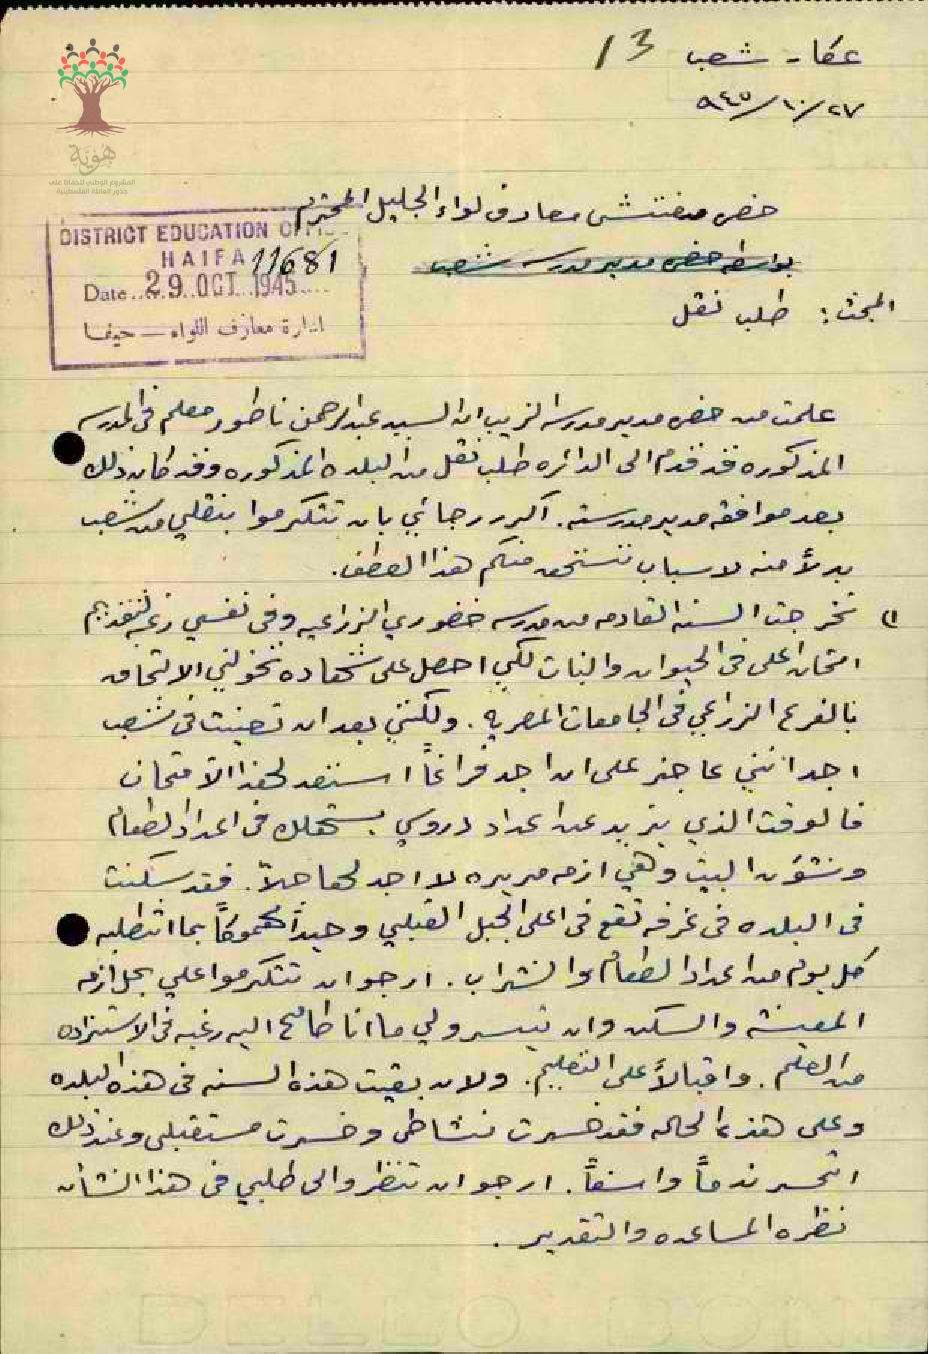 عكا - شعب 13
٢٧/١٠/٩٤٥
هوية
المشروع الوطني للحفاظ على
جذور العائلة الفلسطينية
حضرة مفتش معارف لواء الجليل المحترم
DISTRICT EDUCATION OFFICE
HAIFA 11681
Date 29 OCT 1945
ادارة معارف اللواء — حيفا
بواسطة حضرة مدير مدرسة شعب
المبحث: طلب نقل
علمت من حضرة مدير مدرسة الزيب ان السيد عبدالرحمن ناطور معلم في المدرسه
المذكوره قد قدم الى الدائره طلب نقل من البلده المذكوره وقد كان ذلك
بعد موافقة مدير مدرسته. اكرر رجائي بان تتكرموا بنقلي من شعب
بدلاً منه لاسباب تستحق منكم هذا العطف.
١) تخرجت السنه القادمه من مدرسه خضوري الزراعيه وفي نفسي رغبه لتقديم
امتحان اعلى في الحيوان والنبات لكي احصل على شهاده تخولني الالتحاق
بالفرع الزراعي في الجامعات المصريه. ولكنني بعد ان تعينت في شعب
اجد انني عاجز على ان اجد فراغاً استعد لهذا الامتحان
فالوقت الذي يزيد عن اعداد دروسي يستهلك في اعداد الطعام
وشؤون البيت وهي ازمه مريره لا اجد لها حلاً. فقد سكنت
في البلده في غرفه تقع في اعلى الجبل القبلي وحيداً منهوكاً بما اتطلبه
كل يوم من اعداد الطعام والشراب. ارجو ان تتكرموا علي بحل ازمه
المعيشه والسكن وان تيسروا لي ما انا طامح اليه رغبه في الاستزاده
من العلم. واقبالاً على التعليم. ولان بقيت هذه السنه في هذه البلده
وعلى هذه الحاله فقد خسرت نشاطي وخسرت مستقبلي وعند ذلك
اتحسر ندماً واسفاً. ارجو ان تنظروا الى طلبي في هذا الشأن
نظره المساعده والتقدير.